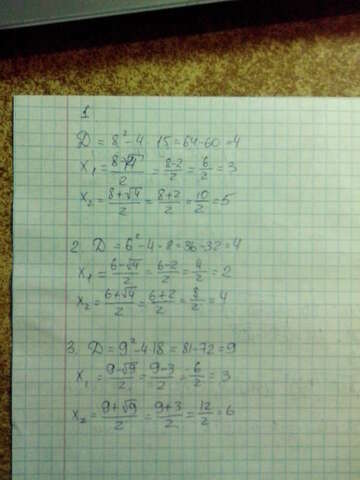 1
D = 8² - 4 · 15 = 64 - 60 = 4
x₁ = (8-√4)/2 = (8-2)/2 = 6/2 = 3
x₂ = (8+√4)/2 = (8+2)/2 = 10/2 = 5
2. D = 6² - 4 · 8 = 36 - 32 = 4
x₁ = (6-√4)/2 = (6-2)/2 = 4/2 = 2
x₂ = (6+√4)/2 = (6+2)/2 = 8/2 = 4
3. D = 9² - 4 · 18 = 81 - 72 = 9
x₁ = (9-√9)/2 = (9-3)/2 = 6/2 = 3
x₂ = (9+√9)/2 = (9+3)/2 = 12/2 = 6